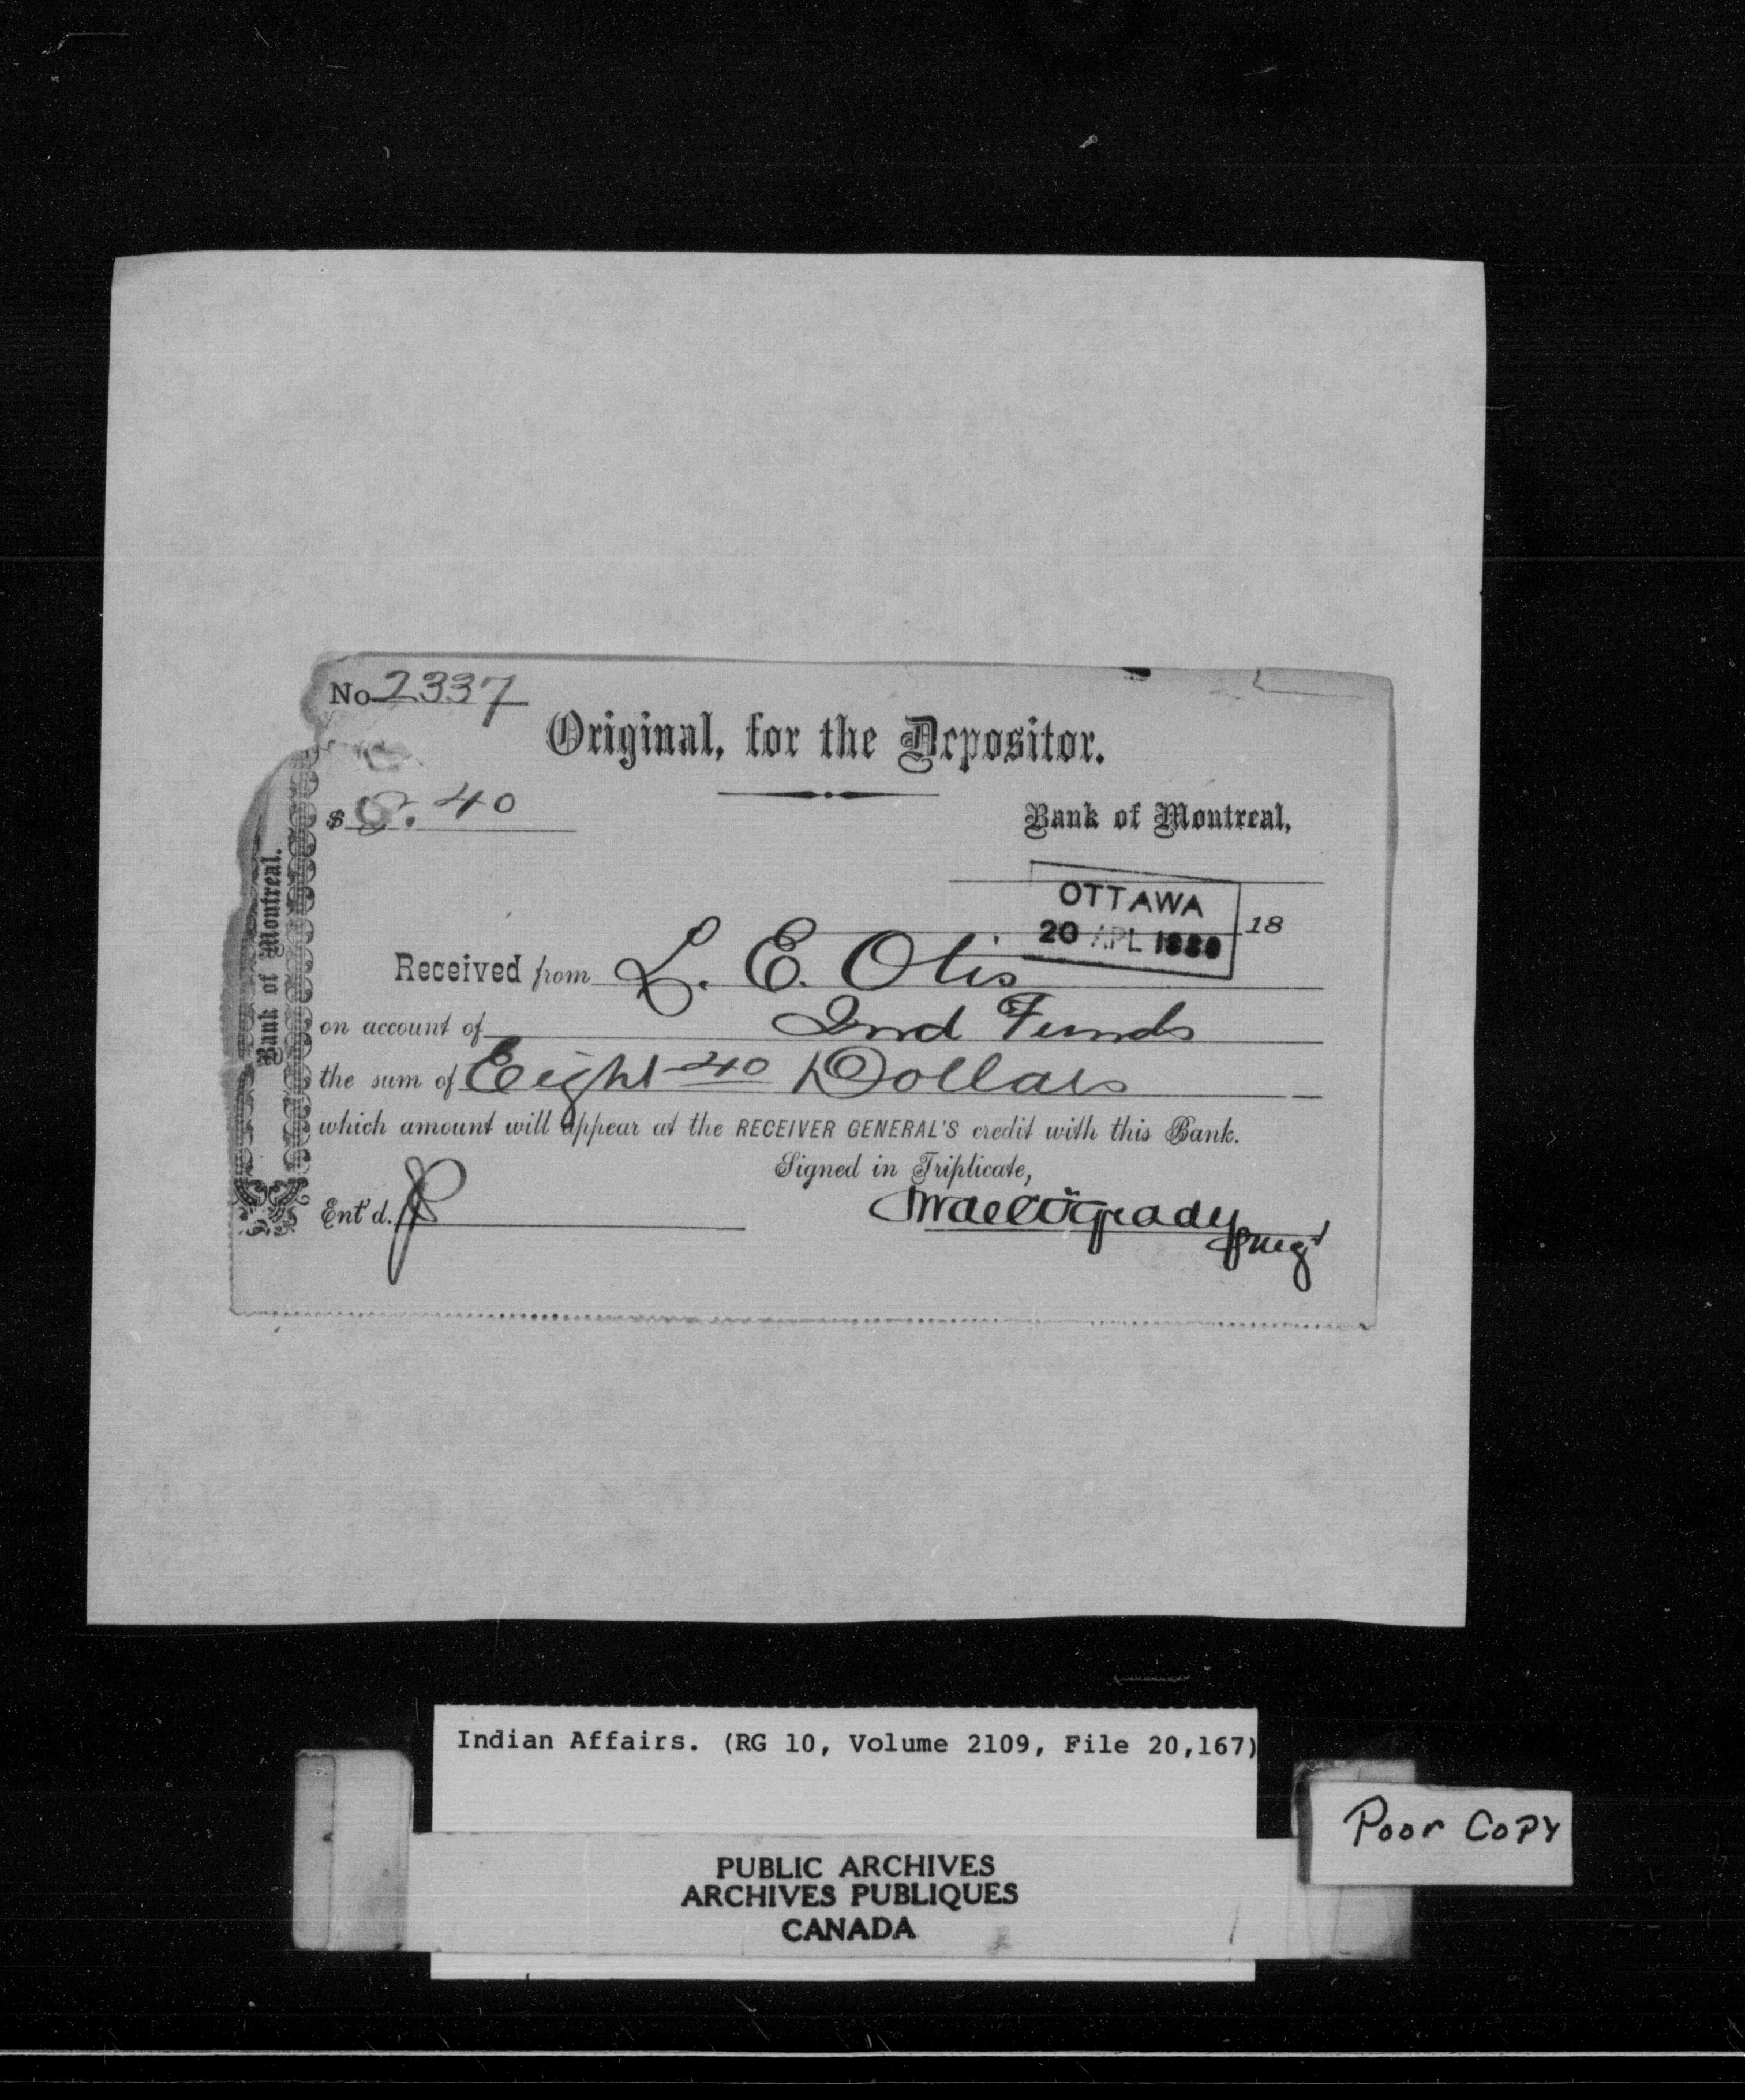 No 2337
Original, for the Depositor.
$ 8.40
Bank of Montreal,
OTTAWA
20 APL 1880
18
Received from L. E. Otis
on account of Ind Funds
the sum of Eight 40 Dollars
which amount will appear at the RECEIVER GENERAL'S credit with this Bank.
Signed in Triplicate,
Ent'd.
Bank of Montreal.
Indian Affairs. (RG 10, Volume 2109, File 20,167)
Poor Copy
PUBLIC ARCHIVES
ARCHIVES PUBLIQUES
CANADA